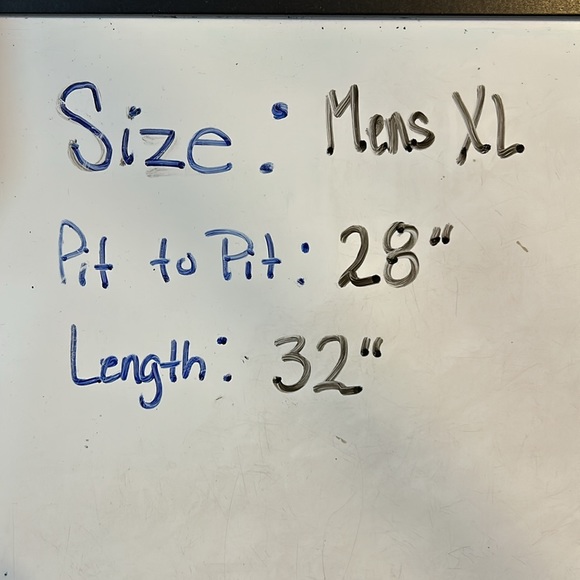 Size: Mens XL
Pit to Pit: 28"
Length: 32"